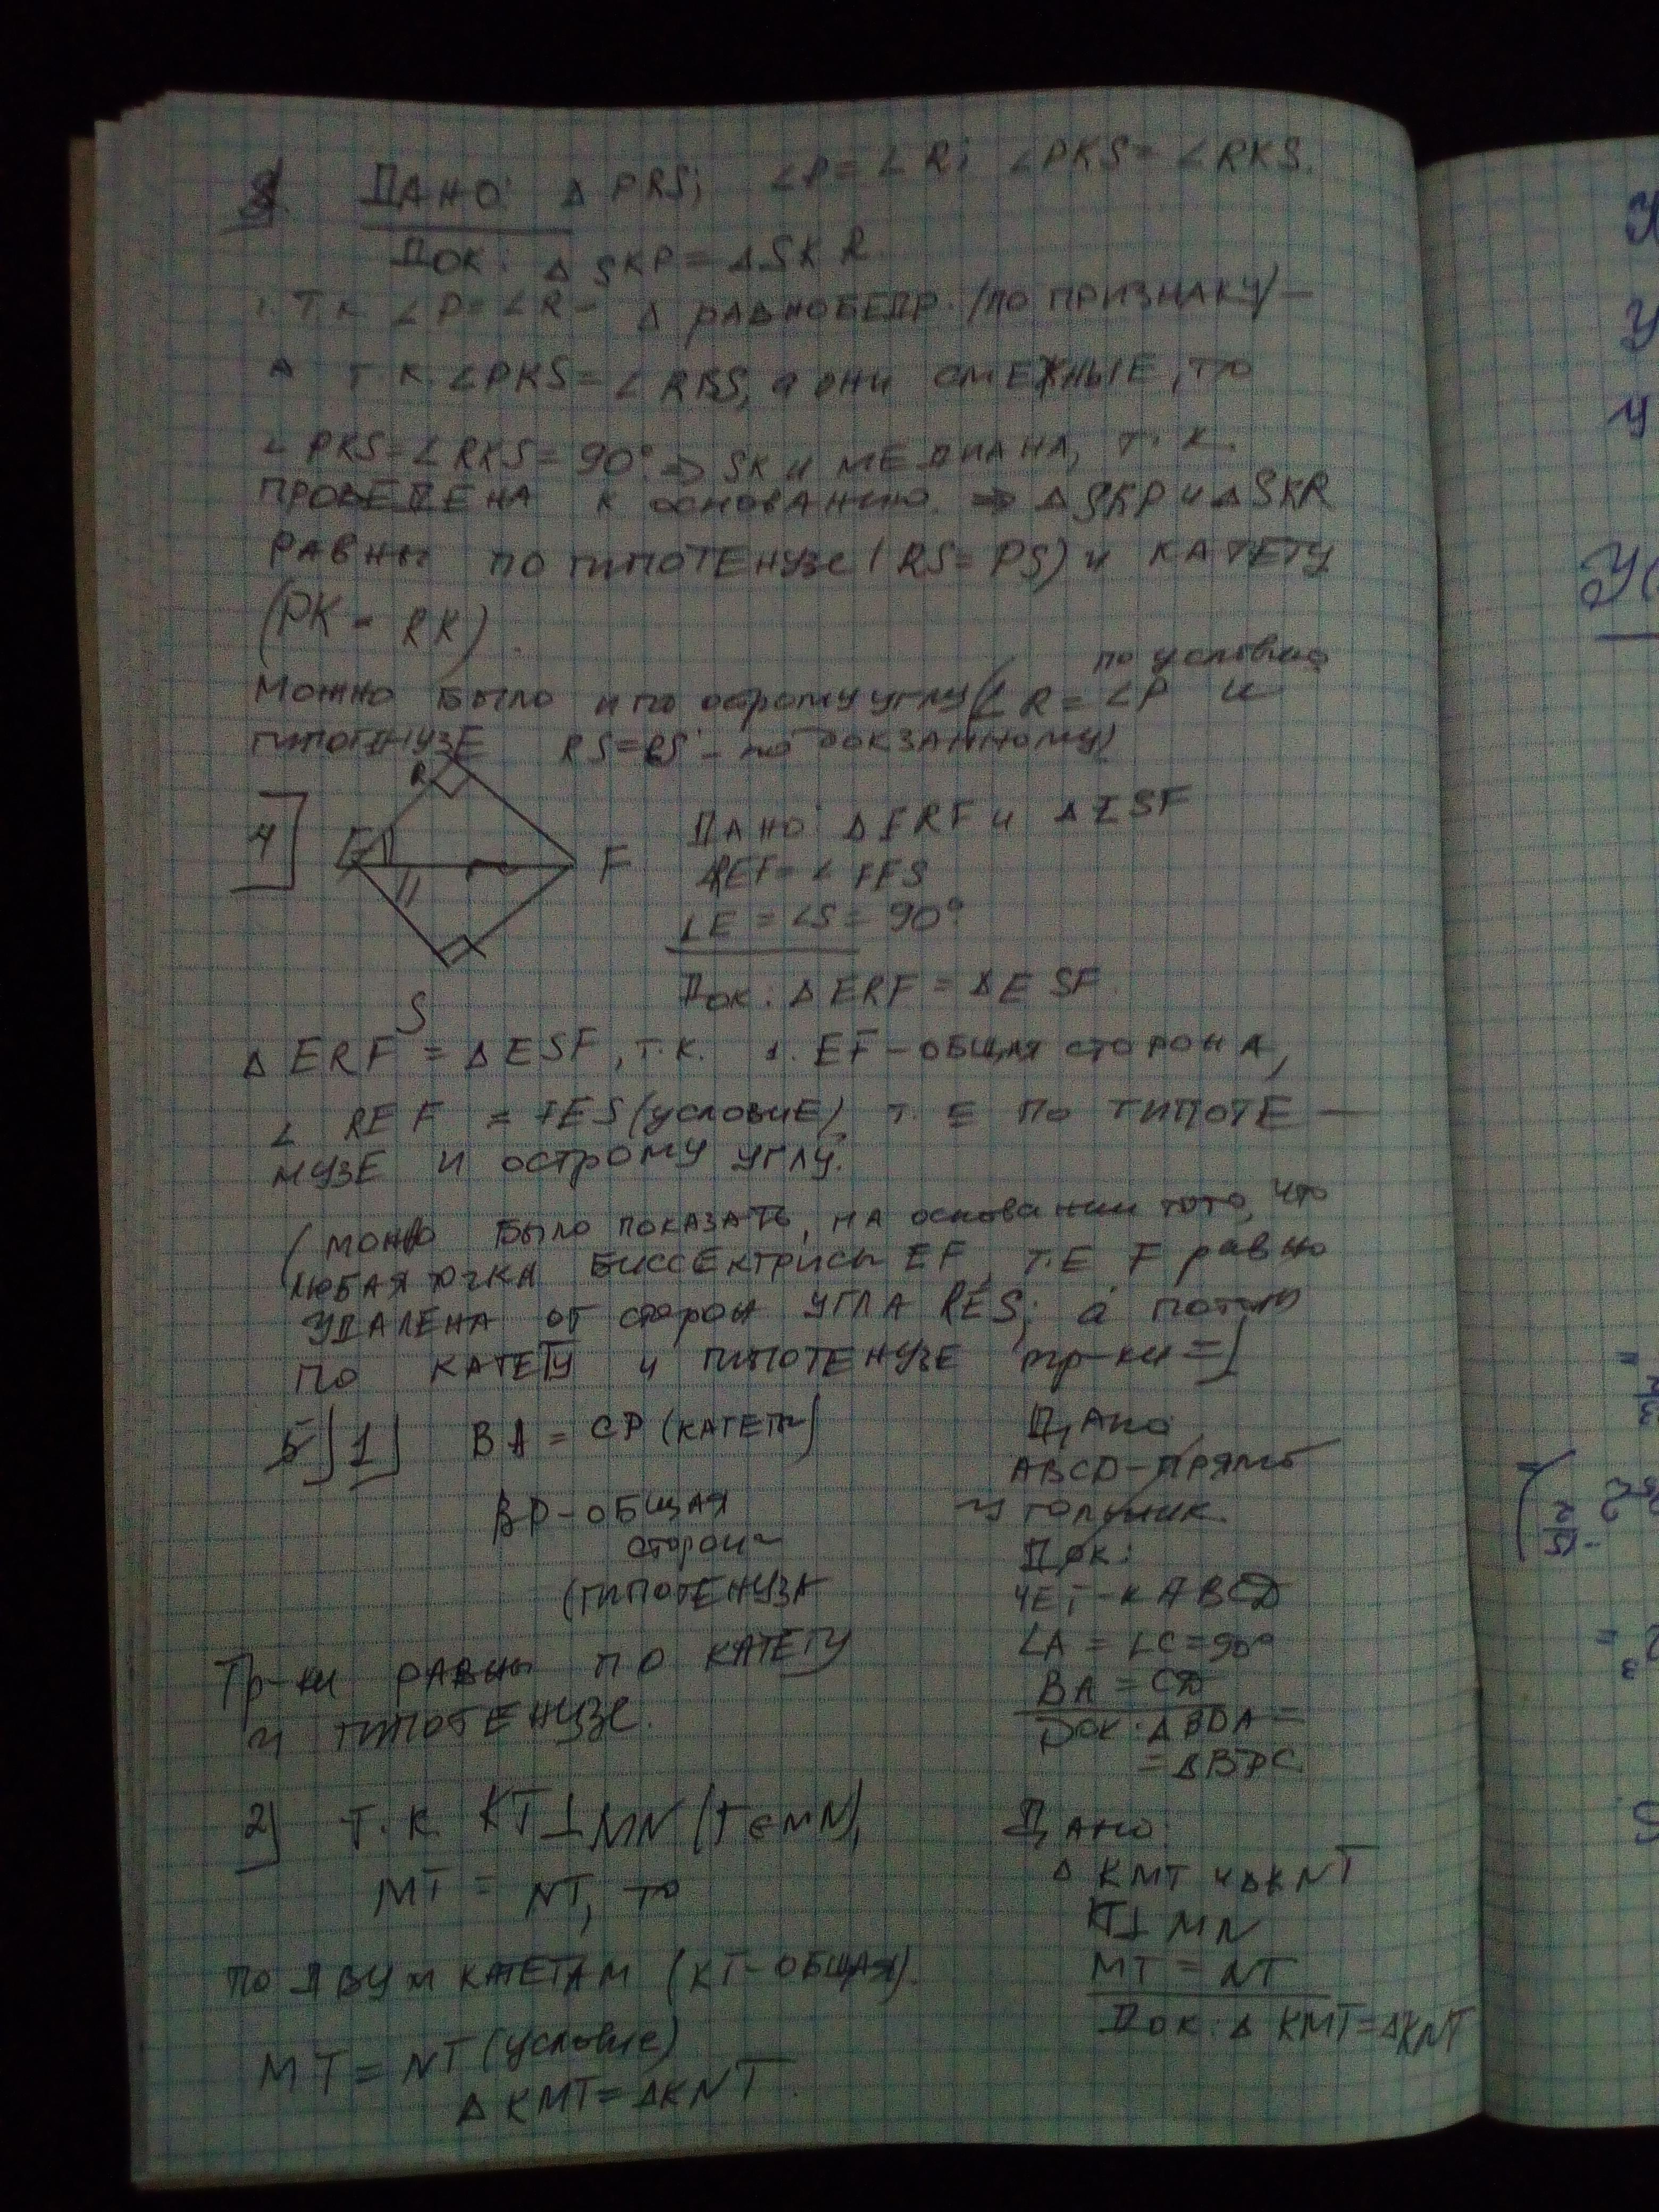 ДАНО: Δ PRS; ∠P = ∠R; ∠PKS = ∠RKS.
Док: Δ SKP = ΔSKR
1. Т.К ∠P = ∠R – Δ РАВНОБЕДР. /ПО ПРИЗНАКУ/ –
А т.к. ∠PKS = ∠RBS, а они СМЕЖНЫЕ, то
∠PKS = ∠RKS = 90° ⇒ SK и МЕДИАНА, т.к.
ПРОВЕДЕНА к основанию. ⇒ Δ SKP и Δ SKR
РАВНЫ по гипотенузе (RS = PS) и КАТЕТУ
(PK = RK).
по условию
Можно было и по острому углу (∠R = ∠P и
гипотенузе RS=PS – по доказанному)
4]
R
E
F
S
ДАНО: Δ ERF и Δ ESF
∠REF = ∠FES
∠E = ∠S = 90°
Док: Δ ERF = Δ ESF.
Δ ERF = Δ ESF, т.к. 1. EF – общая сторона,
∠ REF = FES (условие) т. Е по гипоте –
нузе и острому углу.
(можно было показать, на основании того, что
любая точка биссектрисы EF, т.е F равно
удалена от сторон угла RES; а потом
по катету и гипотенузе тр-ки =]
5] 1] BA = CD (катеты)
BD – общая
сторона
(гипотенуза
Тр-ки равны по катету
и гипотенузе.
Дано
ABCD – прямо
угольник.
Док:
чет-к ABCD
∠A = ∠C = 90°
BA = CD
Док: Δ BDA =
= Δ BDC
2] Т.к KT ⊥ MN (T ∈ MN),
MT = NT, то
по двум катетам (KT – общая).
MT = NT (условие)
Δ KMT = ΔKNT.
Дано:
Δ KMT и Δ KNT
KT ⊥ MN
MT = NT
Док: Δ KMT = ΔKNT